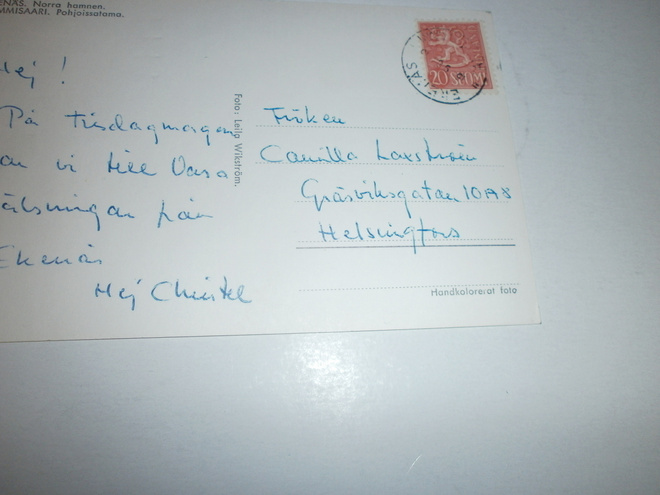 ENÄS. Norra hamnen.
MMISAARI. Pohjoissatama.
Hej!
På tisdagmorgon
an vi till Vasa
älsningar från
Ekenäs
Hej Christel
Foto: Leila Wikström.
20 SUOMI
EKENÄS
Fröken
Camilla Laxström
Gräsviksgatan 10 A 8
Helsingfors
Handkolorerat foto